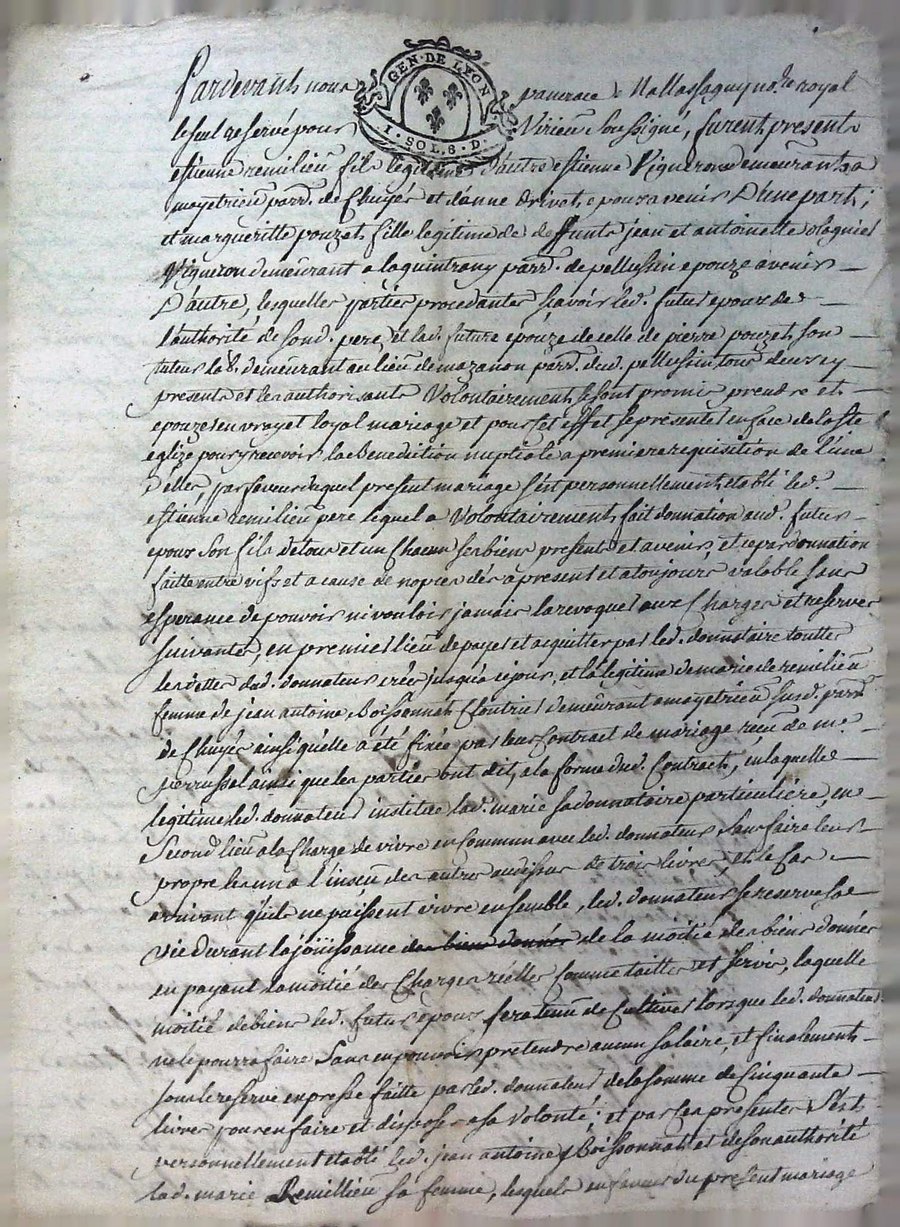 GEN · DE LYON
1 · SOL · 8 · D ·
Pardevant nous pancrace Mallassagny no.re royal
le seul reservé pour Virieu soussigné, furent present
estienne remilieu fils legitime d'autre estienne Vigneron demeurants a
mayetrieu parr. de Chuyés et d'anne drivet, epoux avenir D'une part;
et margueritte pouzet fille legitime de deffunts jean et antoinette olagnier
Vigneron demeurant a laquintrany parr. de pellussin epouze avenir
D'autre, lesquelles parties procedantes sçavoir led. futur epoux de
l'authorité de sond. pere, et lad. future epouze de celle de pierre pouzet, son
tuteur demeurant au lieu de mazanon parr. dud. pellussin tous deux icy
presents et les authorisants Volontairement, se sont promis prendre et
epouzer en vray et loyal mariage et pour cet effet se presenter en face de la ste
eglize pour y recevoir la Benediction nuptiale a premiere requisition de l'une
D'elles, par faveur duquel present mariage s'est personnellement, etabli led.
estienne remilieu pere lequel a Volontairement, fait donnation aud. futur
epoux son fils de tous et un Chacun ses biens presents et avenir, et ce par donnation
faitte entre vifs et a cause de nopces dés a present et a toujours valable sans
esperance de pouvoir ni vouloir jamais la revoquer aux Charges et reserves
suivantes, en premier lieu de payer et acquitter par led. donnataire touttes
les dettes dud. donnateur créés jusqu'a ce jour, et la legitime de marie de remilieu
femme de jean antoine Boissonnat Cloutrier demeurant a mayetrieu susd. parr.
de Chuyés ainsi qu'elle a été fixée par leur Contract de mariage receu de me
perrussel ainsi que les parties ont dit, a la forme dud. Contract, en laquelle
legitime led. donnateur institue lad. marie sa donnataire particuliere, en
Second lieu a la Charge de vivre en Commun avec led. donnateur, sans faire leur
propre les uns a l'insceu des autres audessus de trois livres, et le Cas
arrivant qu'ils ne puissent vivre ensemble, led. donnateur se reserve sa
vie durant la joüissance des biens donnés de la moitié des biens donnés
en payant la moitié des Charges réelles Comme tailles et servis, laquelle
moitié de biens led. futur epoux sera tenu de Cultiver lorsque led. donnateur
ne le pourra faire sans en pouvoir pretendre aucun salaire, et finalement
sous le reserve expresse faitte par led. donnateur de la somme de Cinquante
livres pour en faire et disposer a sa Volonté; et par les presentes s'est
personnellement etabli led. jean antoine Boissonnat et de son authorité
lad. marie Remillieu sa femme, lesquels en faveur du present mariage